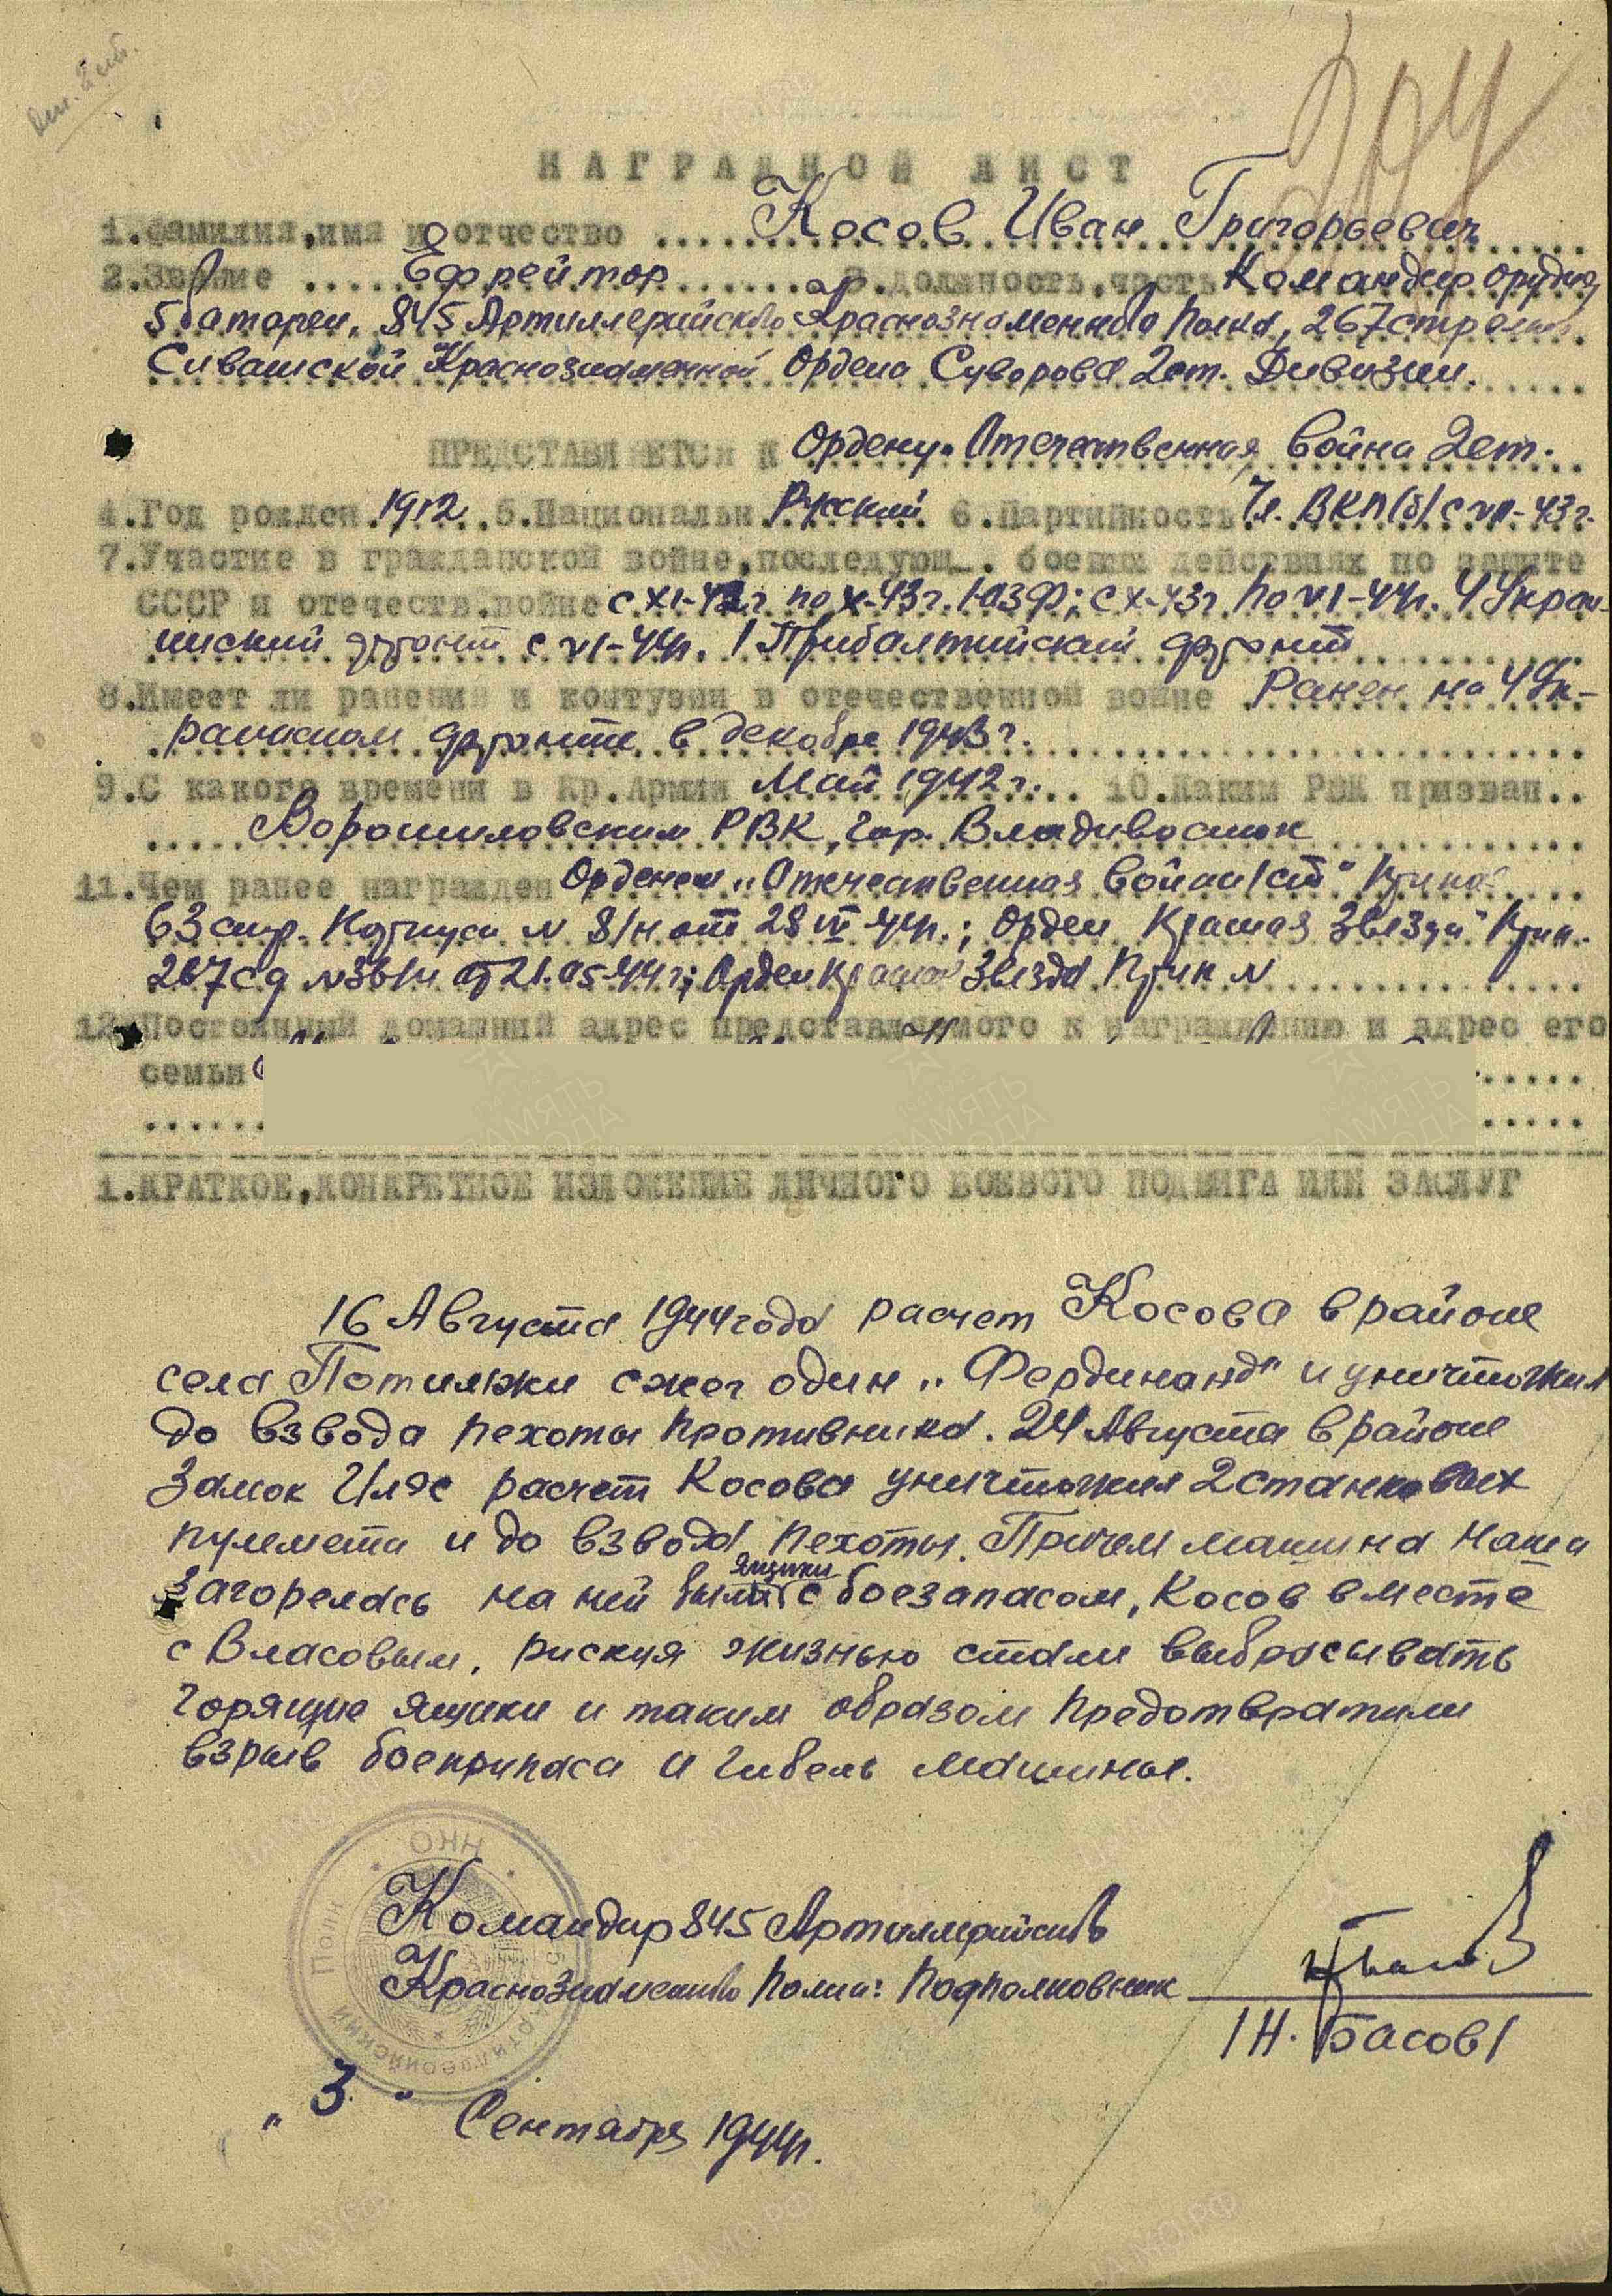 НАГРАДНОЙ ЛИСТ
1.Фамилия,имя и отчество .... Косов Иван Григорьевич
2.Звание .... Ефрейтор .... 3.должность,часть Командир орудия
5 батареи, 845 Артиллерийского Краснознаменного Полка, 267 стрелков.
Сивашской Краснознаменной Ордена Суворова 2 ст. Дивизии.
ПРЕДСТАВЛЯЕТСЯ К Ордену "Отечественная война 2 ст.
4.Год рожден. 1912 5.Национальн. Русский 6.Партийность Чл. ВКП(б) с VII-43 г.
7.Участие в гражданской войне,последующ. боевых действиях по защите
СССР и отечеств.войне с XI-42 г по X-43 г. ЮЗФ; с X-43 г. по VI-44 г. 4 Украи-
нский фронт с VI-44 г. 1 Прибалтийский фронт
8.Имеет ли ранения и контузии в отечественной войне Ранен на 4 Ук-
раинском фронте в декабре 1943 г.
9.С какого времени в Кр.Армии Май 1942 г. 10.Каким РВК призван..
Ворошиловским РВК, гор. Владивосток
11.Чем ранее награжден Орденом "Отечественная война 1 ст"
63 стр. Корпуса N 8/н от 28 44 г.; Орден Красная Звезда"
267 сд N 36/н от 21.05-44 г; Орден Красная Звезда N
12.Постоянный домашний адрес представляемого к награждению и адрес его
семьи
1.КРАТКОЕ,КОНКРЕТНОЕ ИЗЛОЖЕНИЕ ЛИЧНОГО БОЕВОГО ПОДВИГА ИЛИ ЗАСЛУГ
16 Августа 1944 года расчет Косова в районе
села Потилжи сжег один "Фердинанд" и уничтожил
до взвода пехоты противника. 24 Августа в районе
Замок Иляс расчет Косова уничтожил 2 станковых
пулемета и до взвода пехоты. Причем машина наша
загорелась на ней были ящики с боезапасом, Косов вместе
с Власовым, рискуя жизнью стали выбрасывать
горящие ящики и таким образом предотвратили
взрыв боеприпаса и гибель машины.
Командир 845 Артиллерийского
Краснознаменного Полка: Подполковник
/Н. Басов/
"3" Сентября 1944 г.